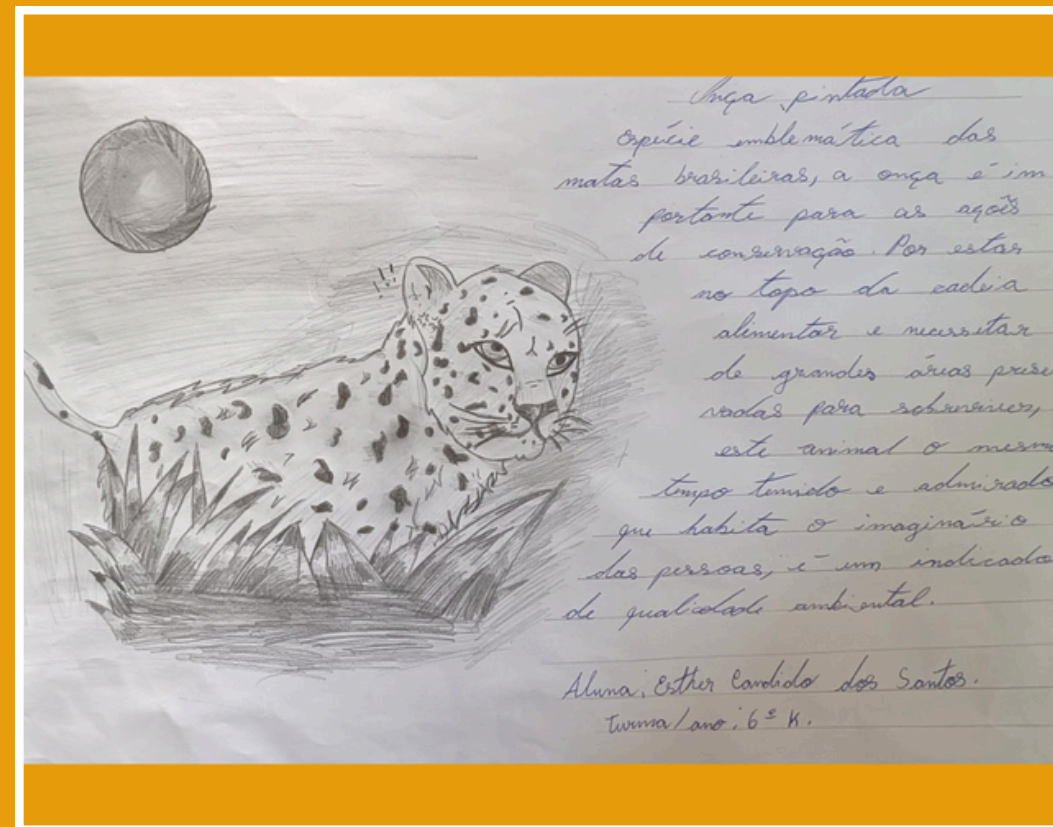 Onça pintada
espécie emblemática das
matas brasileiras, a onça é im
portante para as açoẽs
de conservação. Por estar
no topo da cadeia
alimentar e necessitar
de grandes áreas prese
vadas para sobreviver,
este animal o mesmo
tempo temido e admirado
que habita o imaginário
das pessoas, é um indicado
de qualidade ambiental.
Aluna: Esther Candido dos Santos.
Turma/ano: 6º K.